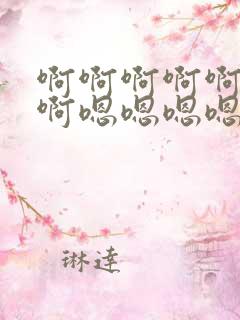 啊啊啊啊啊
啊嗯嗯嗯嗯
琳達